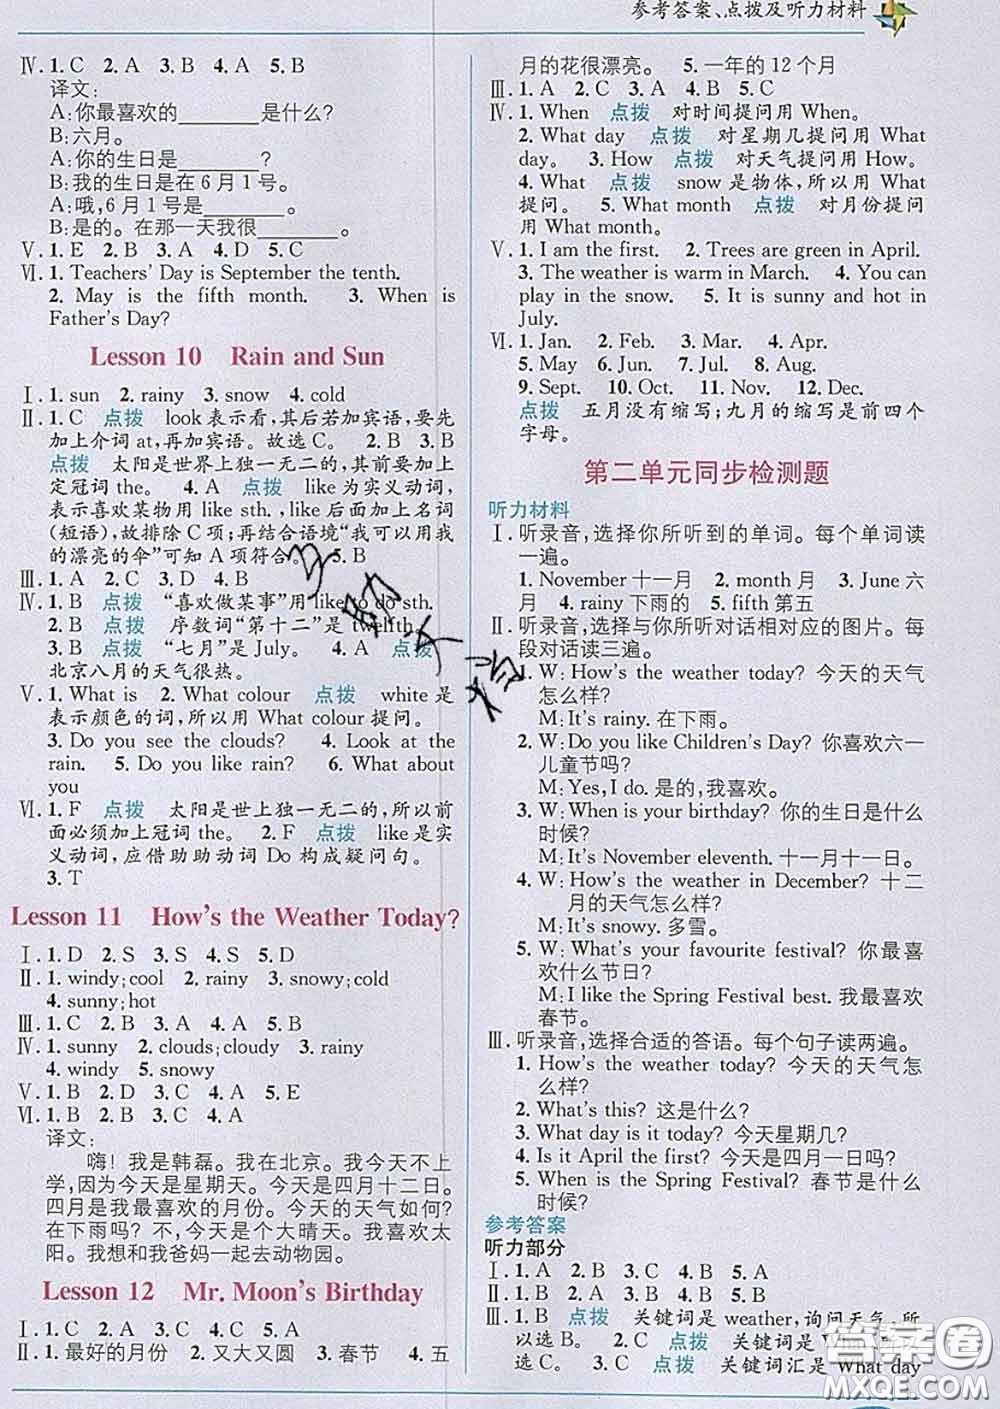 参考答案、点拨及听力材料
Ⅳ. 1. C 2. A 3. B 4. A 5. B
译文:
A:你最喜欢的________是什么?
B:六月。
A:你的生日是________?
B:我的生日是在6月1号。
A:哦,6月1号是________。
B:是的。在那一天我很________。
Ⅴ. 1. E 2. B 3. A 4. D 5. C
Ⅵ. 1. Teachers' Day is September the tenth.
2. May is the fifth month. 3. When is
Father's Day?
Lesson 10 Rain and Sun
Ⅰ. 1. sun 2. rainy 3. snow 4. cold
Ⅱ. 1. C 点拨 look表示看,其后若加宾语,要先
加上介词at,再加宾语。故选C。 2. B 3. B
点拨 太阳是世界上独一无二的,其前要加上
定冠词the。 4. A 点拨 like为实义动词,
表示喜欢某物用like sth.,like后面加上名词
(短语),故排除C项;再结合语境“我可以用我
的漂亮的伞”可知A项符合。 5. B
Ⅲ. 1. A 2. C 3. D 4. B
Ⅳ. 1. B 点拨 “喜欢做某事”用like to do sth.
2. B 点拨 序数词“第十二”是twelfth。
3. B 点拨 “七月”是July。 4. A 点拨
北京八月的天气很热。
Ⅴ. 1. What is 2. What colour 点拨 white是
表示颜色的词,所以用What colour提问。
3. Do you see the clouds? 4. Look at the
rain. 5. Do you like rain? 6. What about
you
Ⅵ. 1. F 点拨 太阳是世上独一无二的,所以前
面必须加上冠词the。 2. F 点拨 like是实
义动词,应借助助动词Do构成疑问句。
3. T
Lesson 11 How's the Weather Today?
Ⅰ. 1. D 2. S 3. S 4. S 5. D
Ⅱ. 1. windy;cool 2. rainy 3. snowy;cold
4. sunny;hot
Ⅲ. 1. C 2. B 3. A 4. A 5. B
Ⅳ. 1. sunny 2. clouds;cloudy 3. rainy
4. windy 5. snowy
Ⅴ. 1. B 2. D 3. C 4. A 5. E
Ⅵ. 1. B 2. B 3. C 4. A
译文:
嗨!我是韩磊。我在北京。我今天不上
学,因为今天是星期天。今天是四月十二日。
四月是我最喜欢的月份。今天的天气如何?
在下雨吗?不,今天是个大晴天。我喜欢太
阳。我想和我爸妈一起去动物园。
Lesson 12 Mr. Moon's Birthday
Ⅰ. 1. C 2. A 3. C 4. A 5. B
Ⅱ. 1. 最好的月份 2. 又大又圆 3. 春节 4. 五
月的花很漂亮。 5. 一年的12个月
Ⅲ. 1. A 2. C 3. A 4. B 5. C
Ⅳ. 1. When 点拨 对时间提问用When。
2. What day 点拨 对星期几提问用What
day。 3. How 点拨 对天气提问用How。
4. What 点拨 snow是物体,所以用What
提问。 5. What month 点拨 对月份提问
用What month。
Ⅴ. 1. I am the first. 2. Trees are green in April.
3. The weather is warm in March. 4. You can
play in the snow. 5. It is sunny and hot in
July.
Ⅵ. 1. Jan. 2. Feb. 3. Mar. 4. Apr.
5. May 6. Jun. 7. Jul. 8. Aug.
9. Sept. 10. Oct. 11. Nov. 12. Dec.
点拨 五月没有缩写;九月的缩写是前四个
字母。
第二单元同步检测题
听力材料
Ⅰ. 听录音,选择你所听到的单词。每个单词读
一遍。
1. November 十一月 2. month 月 3. June 六
月 4. rainy 下雨的 5. fifth 第五
Ⅱ. 听录音,选择与你所听对话相对应的图片。每
段对话读三遍。
1. W: How's the weather today? 今天的天气
怎么样?
M: It's rainy. 在下雨。
2. W: Do you like Children's Day? 你喜欢六一
儿童节吗?
M: Yes, I do. 是的,我喜欢。
3. W: When is your birthday? 你的生日是什么
时候?
M: It's November eleventh. 十一月十一日。
4. W: How's the weather in December? 十二
月的天气怎么样?
M: It's snowy. 多雪。
5. W: What's your favourite festival? 你最喜
欢什么节日?
M: I like the Spring Festival best. 我最喜欢
春节。
Ⅲ. 听录音,选择合适的答语。每个句子读两遍。
1. How's the weather today? 今天的天气怎
么样?
2. What's this? 这是什么?
3. What day is it today? 今天星期几?
4. Is it April the first? 今天是四月一日吗?
5. When is the Spring Festival? 春节是什么
时候?
参考答案
听力部分
Ⅰ. 1. A 2. B 3. C 4. B 5. A
Ⅱ. 1. B 2. A 3. C 4. B 5. B
Ⅲ. 1. B 点拨 关键词是weather,询问天气,所
以选B。 2. C 点拨 关键词是What,
选C。 3. B 点拨 关键词汇是What day
答案圈
MXQE.COM